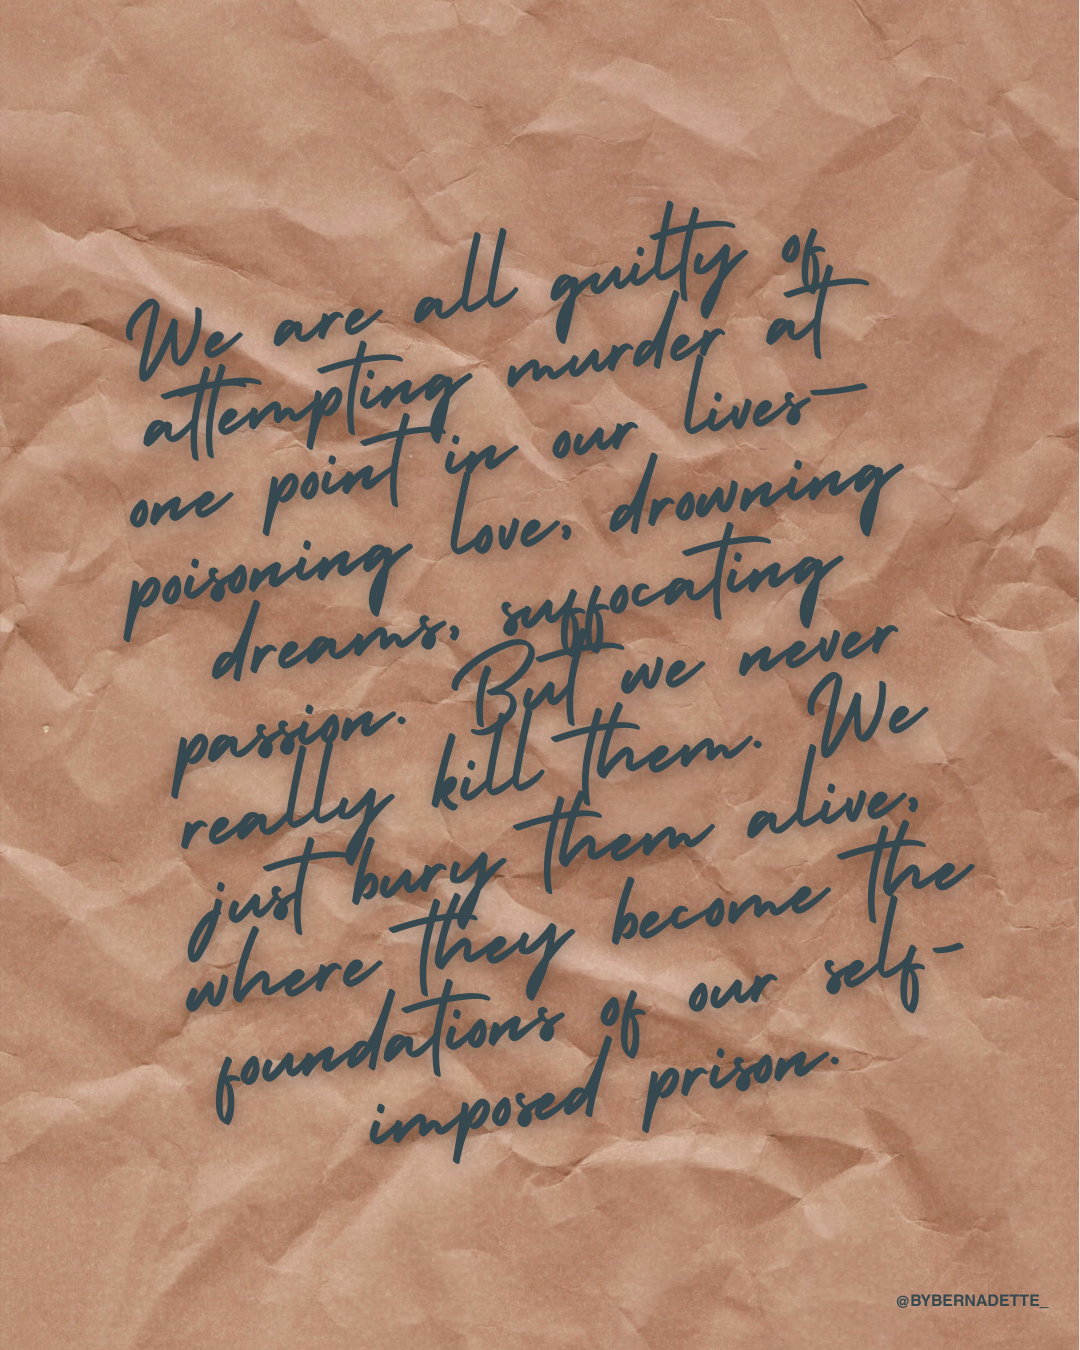 We are all guilty of
attempting murder at
one point in our lives—
poisoning love, drowning
dreams, suffocating
passion. But we never
really kill them. We
just bury them alive,
where they become the
foundations of our self-
imposed prison.
@BYBERNADETTE_